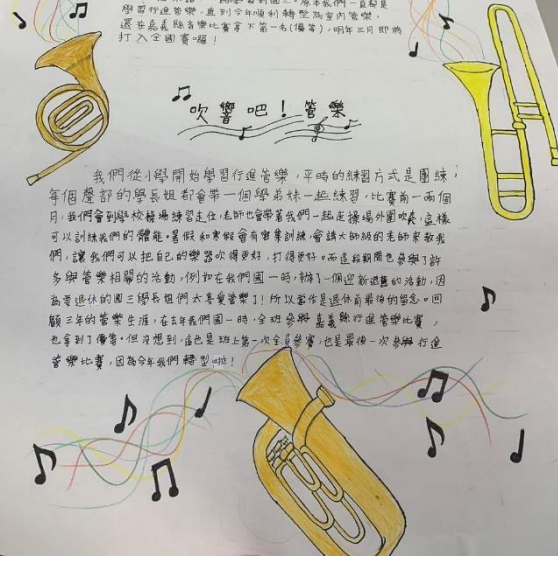 學習行進管樂,直到今年順利轉型為室內管樂,
還在嘉義縣音樂比賽拿下第一名(優等),明年三月即將
打入全國賽囉!
吹響吧!管樂
我們從小學開始學習行進管樂,平時的練習方式是團練,
每個聲部的學長姐都會帶一個學弟妹一起練習,比賽前一兩個
月,我們會到學校操場練習走位,老師也會帶著我們一起走操場外圍吹奏,這樣
可以訓練我們的體能。暑假和寒假會有密集訓練,會請大師級的老師來教我
們,讓我們可以把自己的樂器吹得更好,打得更好。而這段期間也參與了許
多與管樂相關的活動,例如在我們國一時,辦了一個迎新送舊的活動,因
為要退休的國三學長姐們太喜愛管樂了!所以當作是退休前最後的留念。回
顧三年的管樂生涯,在去年我們國一時,全班參與嘉義縣行進管樂比賽,
也拿到了優等。但沒想到,這也是班上第一次全員參賽,也是最後一次參與行進
管樂比賽,因為今年我們轉型啦!